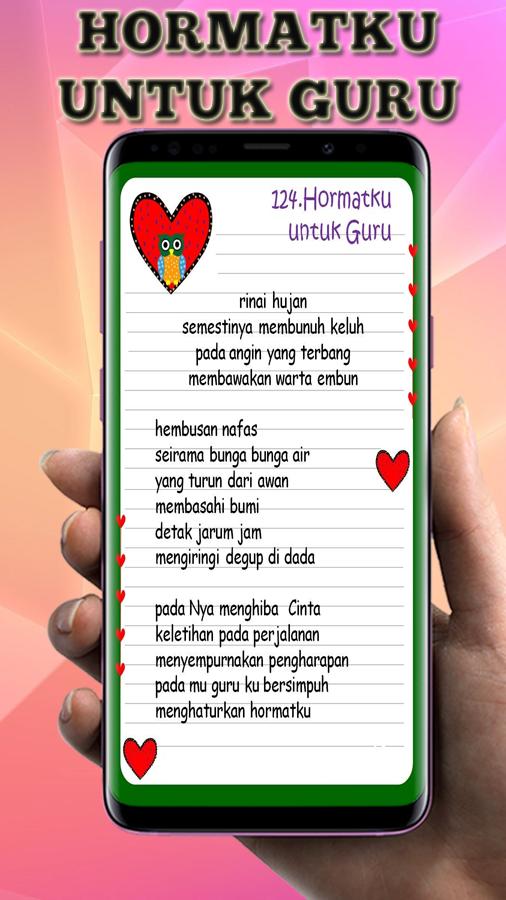 HORMATKU
UNTUK GURU
124.Hormatku
untuk Guru
rinai hujan
semestinya membunuh keluh
pada angin yang terbang
membawakan warta embun
hembusan nafas
seirama bunga bunga air
yang turun dari awan
membasahi bumi
detak jarum jam
mengiringi degup di dada
pada Nya menghiba Cinta
keletihan pada perjalanan
menyempurnakan pengharapan
pada mu guru ku bersimpuh
menghaturkan hormatku